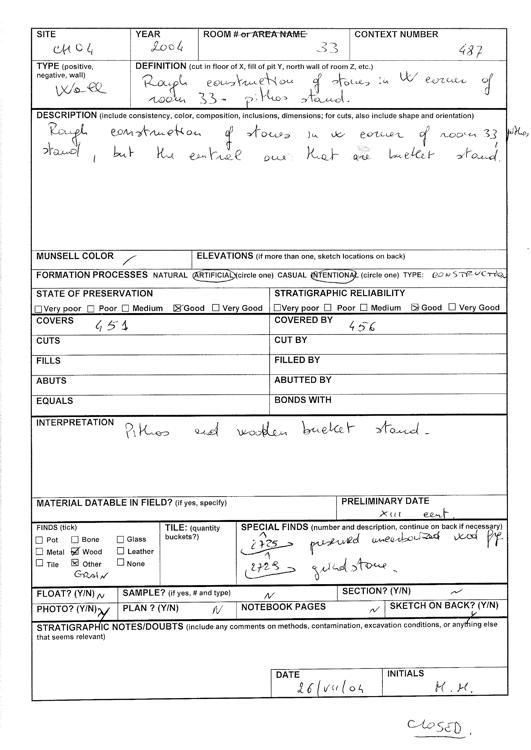 SITE YEAR ROOM # or AREA NAME CONTEXT NUMBER
CH04 2004 33 487
TYPE (positive, negative, wall) DEFINITION (cut in floor of X, fill of pit Y, north wall of room Z, etc.)
Wall Rough construction of stones in W corner of
room 33 - pithos stand.
DESCRIPTION (include consistency, color, composition, inclusions, dimensions; for cuts, also include shape and orientation)
Rough construction of stones in W corner of room 33, pithos
stand, but the central one that are bucket stand.
MUNSELL COLOR / ELEVATIONS (if more than one, sketch locations on back)
FORMATION PROCESSES NATURAL ARTIFICIAL (circle one) CASUAL INTENTIONAL (circle one) TYPE: CONSTRUCTION
STATE OF PRESERVATION STRATIGRAPHIC RELIABILITY
Very poor Poor Medium Good Very Good Very poor Poor Medium Good Very Good
COVERS 451 COVERED BY 456
CUTS CUT BY
FILLS FILLED BY
ABUTS ABUTTED BY
EQUALS BONDS WITH
INTERPRETATION
Pithos and wooden bucket stand.
MATERIAL DATABLE IN FIELD? (if yes, specify) PRELIMINARY DATE
XIII cent.
FINDS (tick) TILE: (quantity buckets?) SPECIAL FINDS (number and description, continue on back if necessary)
Pot Bone Glass
Metal Wood Leather
Tile Other None
GRAIN
i725 preserved wood
i728 grindstone.
FLOAT? (Y/N) N SAMPLE? (if yes, # and type) N SECTION? (Y/N) N
PHOTO? (Y/N) Y PLAN ? (Y/N) N NOTEBOOK PAGES N SKETCH ON BACK? (Y/N) Y
STRATIGRAPHIC NOTES/DOUBTS (include any comments on methods, contamination, excavation conditions, or anything else
that seems relevant)
DATE INITIALS
26/VII/04 M.M.
CLOSED.